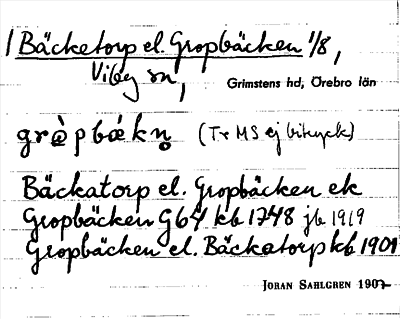 Bäcketorp el. Gropbäcken 1/8,
Viby sn,
Grimstens hd, Örebro län
grὰpbæ̀kn̥ (Tr MS ej bitryck)
Bäckatorp el. Gropbäcken ek
Gropbäcken G64 kb 1748 jb 1919
Gropbäcken el. Bäckatorp kb 1901
JORAN SAHLGREN 1907